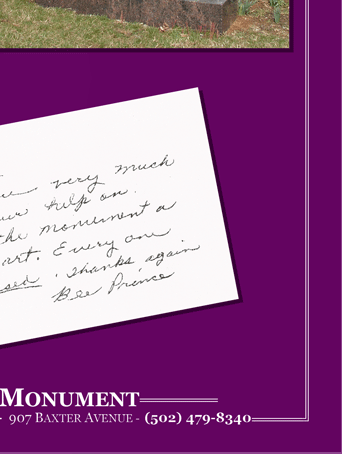 very much
help on
the monument a
art. Every one
sed. Thanks again
Bee Prince
MONUMENT
- 907 BAXTER AVENUE - (502) 479-8340